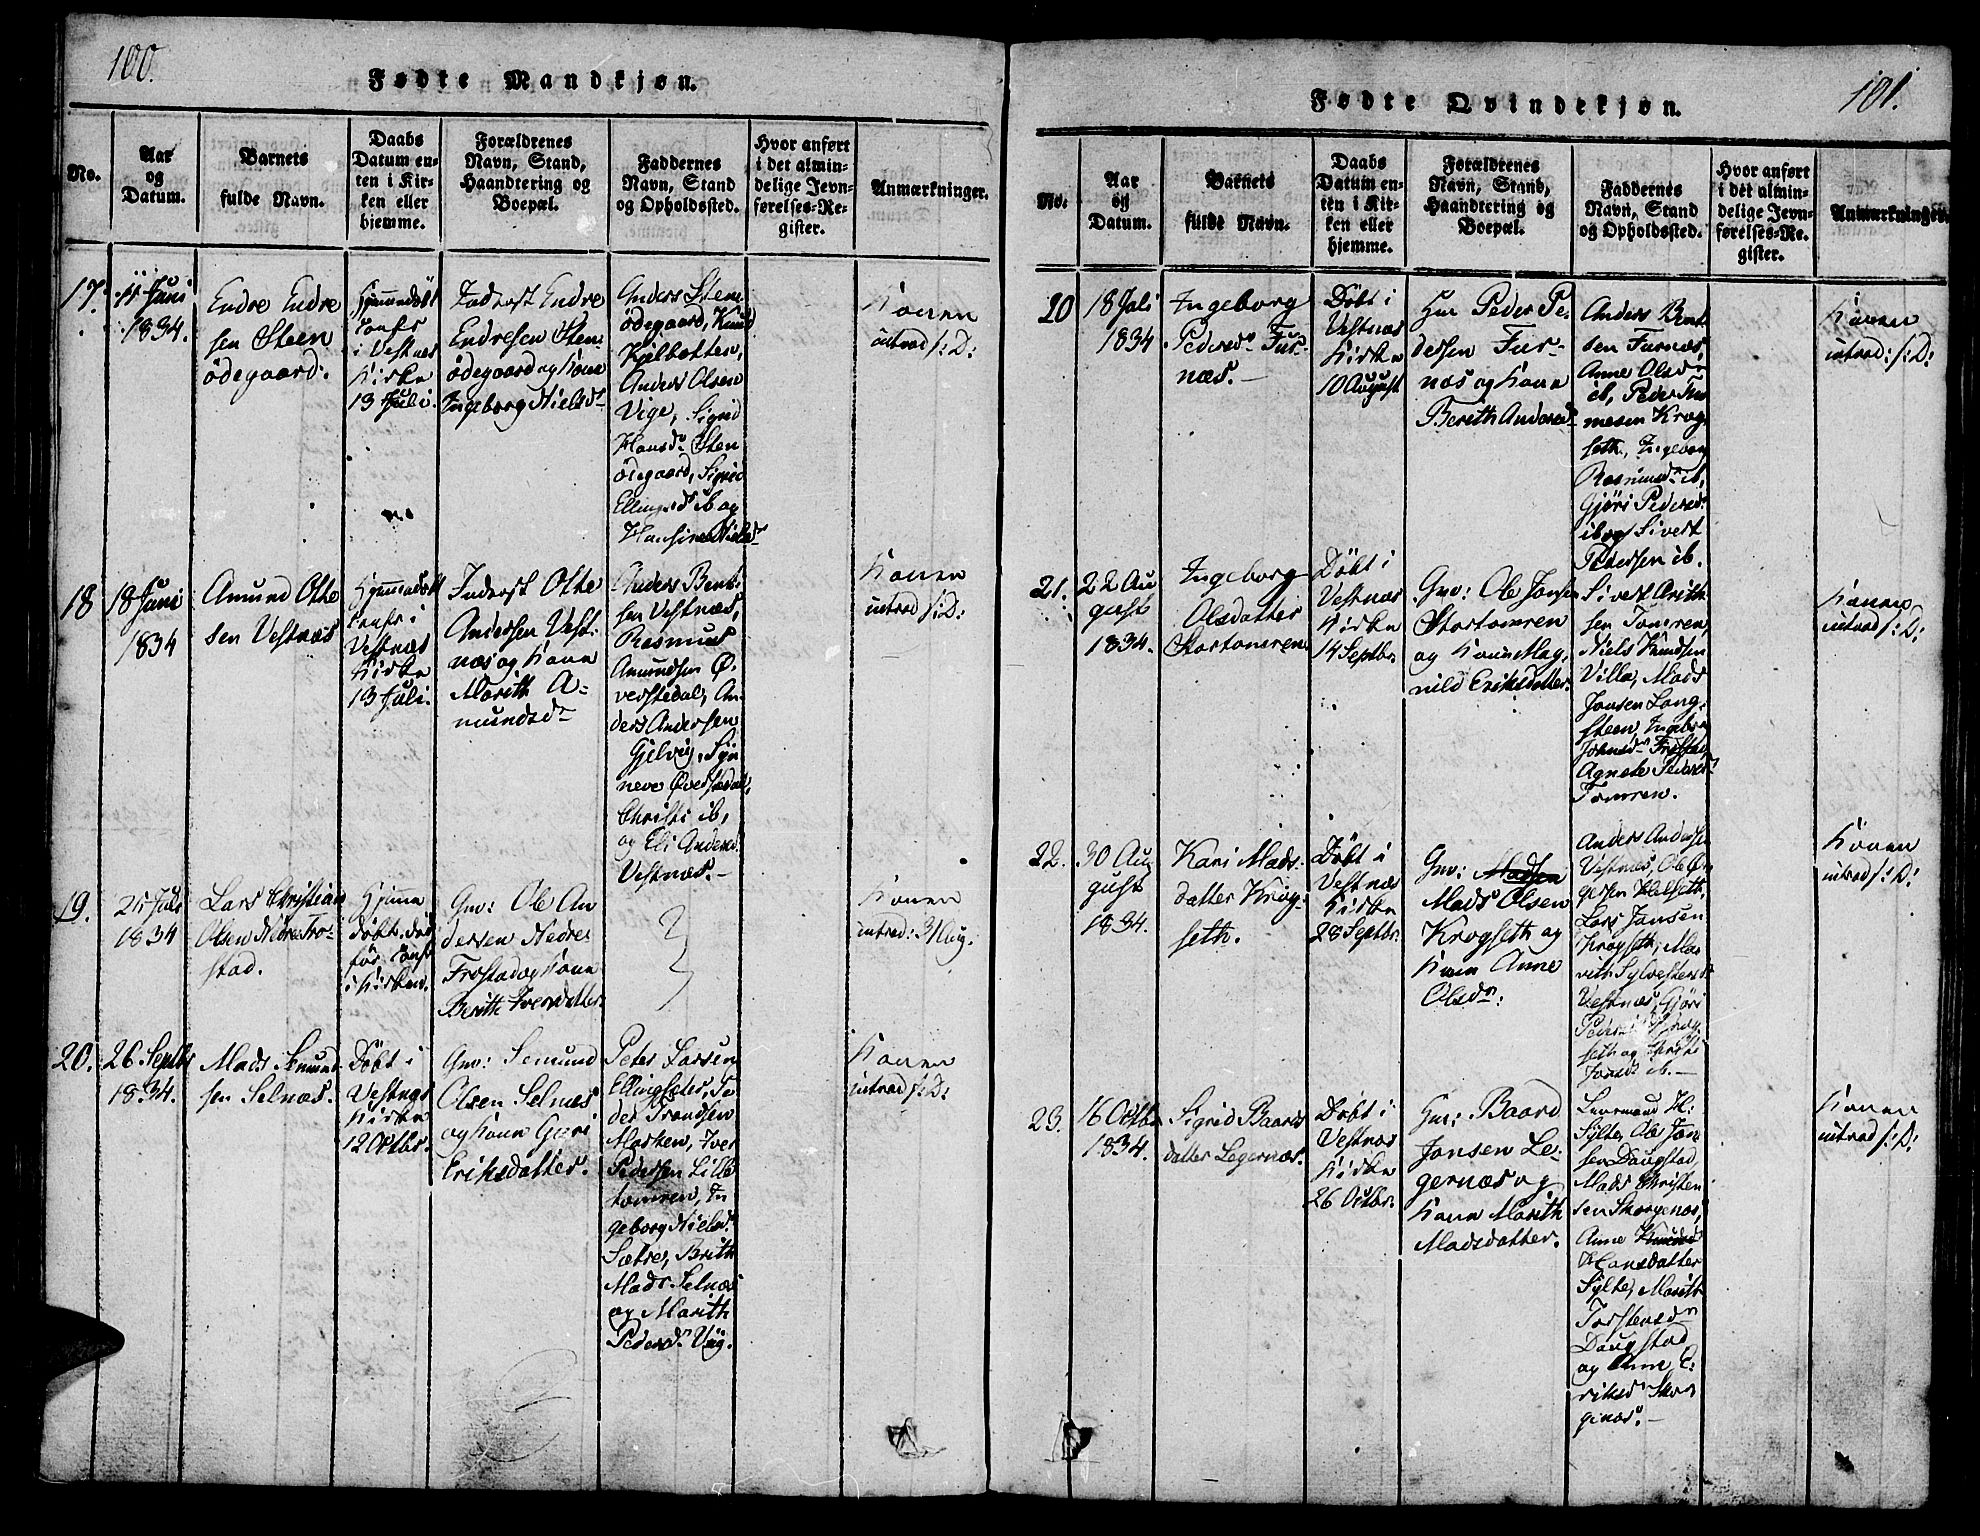 100.
Fødte Mandkjøn.
No.
Aar
og
Datum.
Barnets
fulde Navn.
Daabs
Datum en-
ten i Kir-
ken eller
hjemme.
Forældrenes
Navn, Stand,
Haandtering og
Boepæl.
Faddernes
Navn, Stand
og Opholdssted.
Hvor anført
i det almin-
delige Jevn-
førelses-Re-
gister.
Anmærkninger.
17.
11 Juni
1834.
Endre Endre
sen Steen
ödegaard.
Hjemmedöbt
Confr
i Vestnes
Kirke
13 Juli.
Inderst Endre
Endresen Sten
ödegaard og Kone
Ingeborg Nielsdr
Anders Sten
ödegaard, Knud
Kjelbotten,
Anders Olsen
Vige, Sigrid
Hansdr Sten
ödegaard, Sigrid
Ellingsd ib og
Hansine Nielsdr
Konen
introd /: D:
18
18 Juni
1834
Amund Otte
sen Vestnæs
Hjemmedöbt
Confr i
Vestnæs
Kirke
13 Juli.
Inderst Otte
Andersen Vest-
næs og Kone
Marith A-
mundsdr
Anders Bent-
sen Vestnæs,
Rasmus
Amundsen Ø-
verstedal, An
ders Andersen
Gjelvig, Syn
neve Øverstedal,
Christi ib,
og Eli Andersd.
Vestnæs.-
Konen
introd /: D:
19.
25 Juli
1834
Lars Christian
Olsen Nedre Fro-
stad.
Hjemme
döbt, död
för Conf
i Kirken.
Gm: Ole An
dersen Nedre
Frostad og Kone
Berith Iversdatter.
?
Konen
introd: 3 Aug.
20.
26 Septbr
1834.
Mads Semund
sen Selnæs.
Döbt i
Vestnæs
Kirke
12 Octbr.
Gm: Semund
Olsen Selnæs
og Kone Gjöri
Eriksdatter.
Peter Larsen
Ellingsæter, Pe
der Trondsen
Marken, Iver
Pedersen Lille
tomren, In
geborg Nielsdr
Sætre, Brith
Madsdr Selnæs
og Marith
Pedersdr Viig.
Konen
introd /: D:
101.
Fødte Qvindekjøn.
No.
Aar
og
Datum.
Barnets
fulde Navn.
Daabs
Datum en-
ten i Kir-
ken eller
hjemme.
Forældrenes
Navn, Stand,
Haandtering og
Boepæl.
Faddernes
Navn, Stand
og Opholdssted.
Hvor anført
i det almin-
delige Jevn-
førelses-Re-
gister.
Anmærkninger.
20
18 Juli
1834
Ingeborg
Pedersdr Fur-
næs.-
Döbt i
Vestnæs
Kirke
10 August
Gm Peder Pe
dersen Fur-
næs og Kone
Berith Andersdr
Anders Bent
sen Furnæs,
Anne Olsdr
ib, Peder Tho
mesen Krog
seth, Ingeborg
Rasmusdr ib,
Gjöri Pedersdr
ib og Sivert
Pedersen ib.
Konen
introd: /: D:
21.
22 Au
gust
1834.
Ingeborg
Olsdatter
Stortomren
Döbt i
Vestnæs
Kirke
14 Septbr.
Gm: Ole Jonsen
Stortomren
og Kone Mag-
nild Eriksdatter.
Sivert Arith
sen Tomren,
Niels Knudsen
Villa, Mads
Jonsen Lang-
steen, Ingebr
Johnsdr Frostad,
Agnete Pedersdr
Tomren.
Konen
introd /: D:
22.
30 Au
gust
1834.
Kari Mads
datter Krog-
seth.
Döbt i
Vestnæs
Kirke
28 Septbr.
Gm: Madsen
Mads Olsen
Krogseth og
Kone Anne
Olsdr:
Anders Anderse
Vestnæs, Ole Ø
gersen Helseth,
Lars Jonsen
Krogseth, Ma
rith Sylvestersdr
Vestnæs, Gjöri
Pedersd Krog
seth og
Jonsdr ib.-
Konen
introd /: D:
23.
16 Octbr
1834.
Sigrid Baards
datter Legernæs.
Döbt i
Vestnæs
Kirke
26 Octbr.
Gm: Baard
Jonsen Le-
gernæs og
Kone Marith
Madsdatter.
Lensmand H:
Sylte, Ole Jon
sen Daugstad,
Mads Christen
sen Skorgenæs,
Anne Knudsd
Hansdatter
Sylte, Marith
Torstensdr
Daugstad
og Anne E-
riksd Skor
genæs.-
Konen
introd /: D: